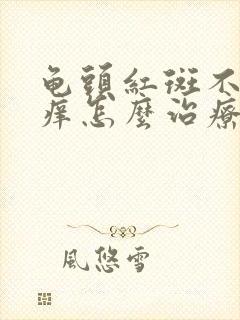 龟頭紅斑不
痒怎麼治療
風悠雪